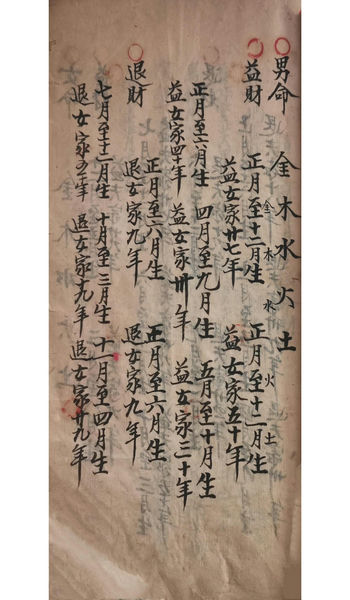 男命 金木水火土
金木水火土
益財 正月至十二月生 正月至十二月生
益女家廿七年 益女家五十年
正月至六月生 四月至九月生 五月至十月生
益女家四十年 益女家卅年 益女家三十年
正月至六月生 正月至六月生
退財 退女家九年 退女家九年
七月至十二月生 十月至三月生 十一月至四月生
退女家年 退女家十九年 退女家廿九年